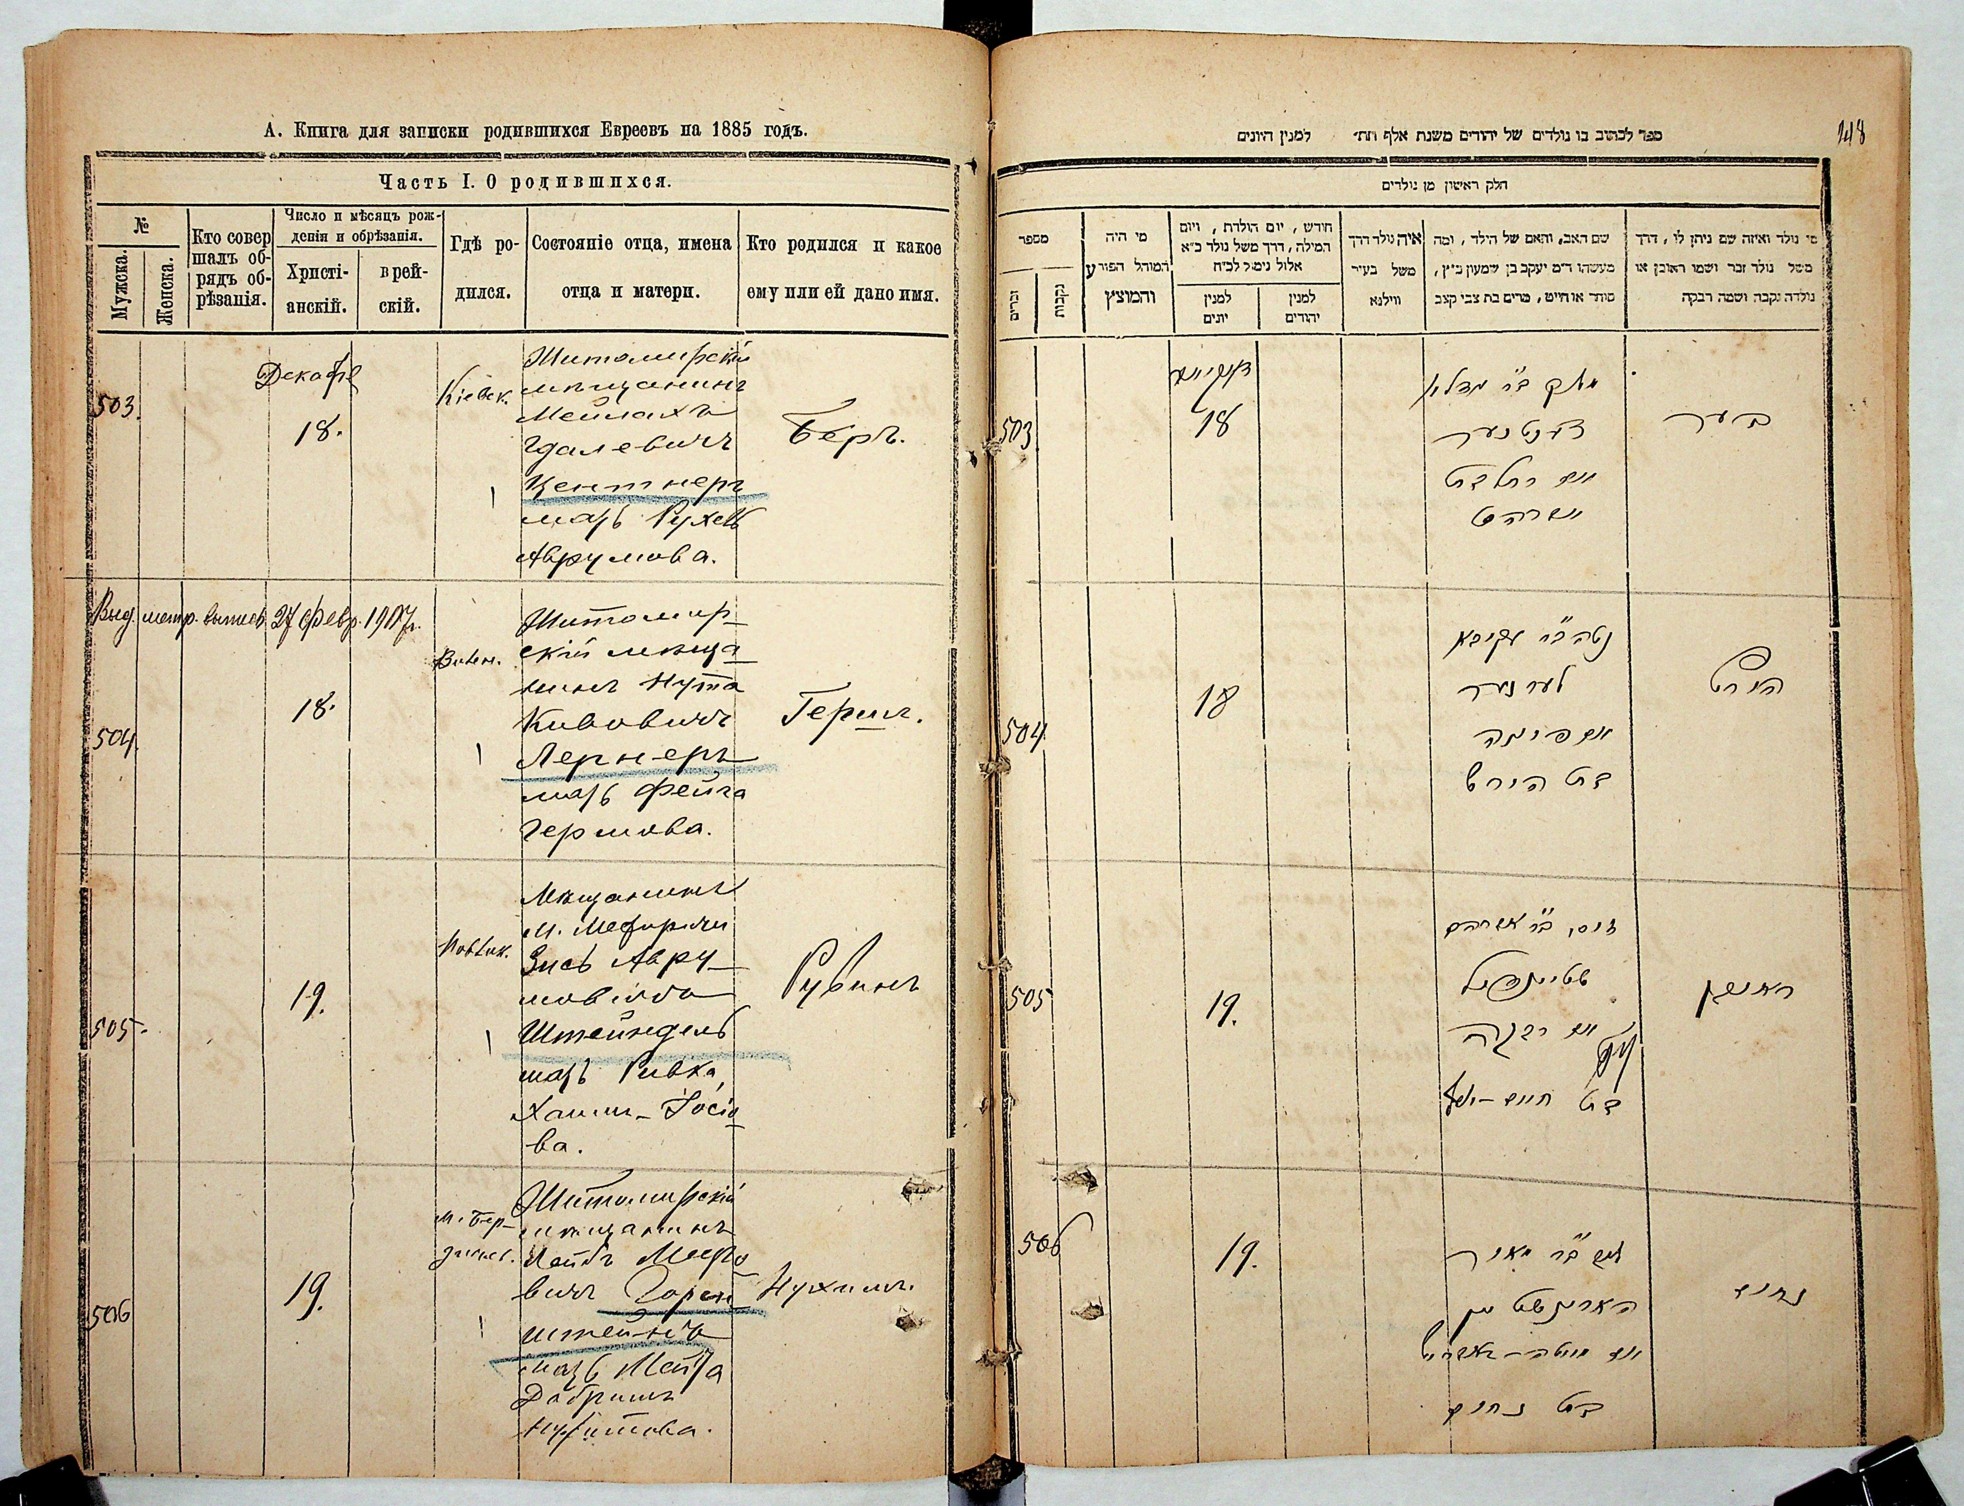 А. Книга для записки родившихся Евреевъ на 1885 годъ.
Часть I. О родившихся.
№
Мужска.
Женска.
Кто совер
шалъ об-
рядъ об-
рѣзанія.
Число и мѣсяцъ рож-
денія и обрѣзанія.
Христі-
анскій.
врей-
скій.
Гдѣ ро-
дился.
Состояніе отца, имена
отца и матери.
Кто родился и какое
ему или ей дано имя.
503.
Декабря
18.
Кіевск.
Житомирскій
мѣщанинъ
Мейлахъ
Гдалевичъ
Центнеръ
мать Рухель
Аврумова.
Беръ.
Выд. метр. выпись 27 февр. 1907 г.
504
18.
Житомир-
скій мѣща
нинъ Нута
Кивовичъ
Лернеръ
мать Фейга
Гершова.
Гершъ.
505.
19.
Мѣщанинъ
м.
Зись Авру-
мовичъ
Штейндель
мать Ривка
Хаим-Іосіо
ва.
Рувинъ
506
19.
м. Бер-
дичев.
Житомирскій
мѣщанинъ
Лейбъ Мееро
вичъ Горен
штейнъ
мать
Добришъ
Нухимова.
Нухимъ.
148
ספר לכתוב בו נולדים של יהודים משנת אלף תת׳ למנין היונים
חלק ראשון מן נולדים
מספר
זכרים
נקבות
מי היה
המוהל הפורע
והמוצץ
חודש, יום הולדת, ויום
המילה, דרך משל נולד כ״א
אלול נימול לכ״ח
למנין
יונים
למנין
יהודים
איה נולד דרך
משל בעיר
ווילנא
שם האב, והאם של הילד, ומה
מעשהו ד״מ יעקב בן שמעון כ״ץ,
סוחר או חייט, מרים בת צבי קצב
מי נולד ואיזה שם ניתן לו, דרך
משל נולד זכר ושמו ראובן או
נולדה נקבה ושמה רבקה
503
18
צענטנער
בער
504
18
נטה ב״ר עקיבא
לערנער
בת הירש
הירש
505
19.
זוסי ב״ר אברהם
ואם רבקה
בת חיים-יוסף
ראובן
506
19.
ליב ב״ר מאיר
בת נחום
נחום